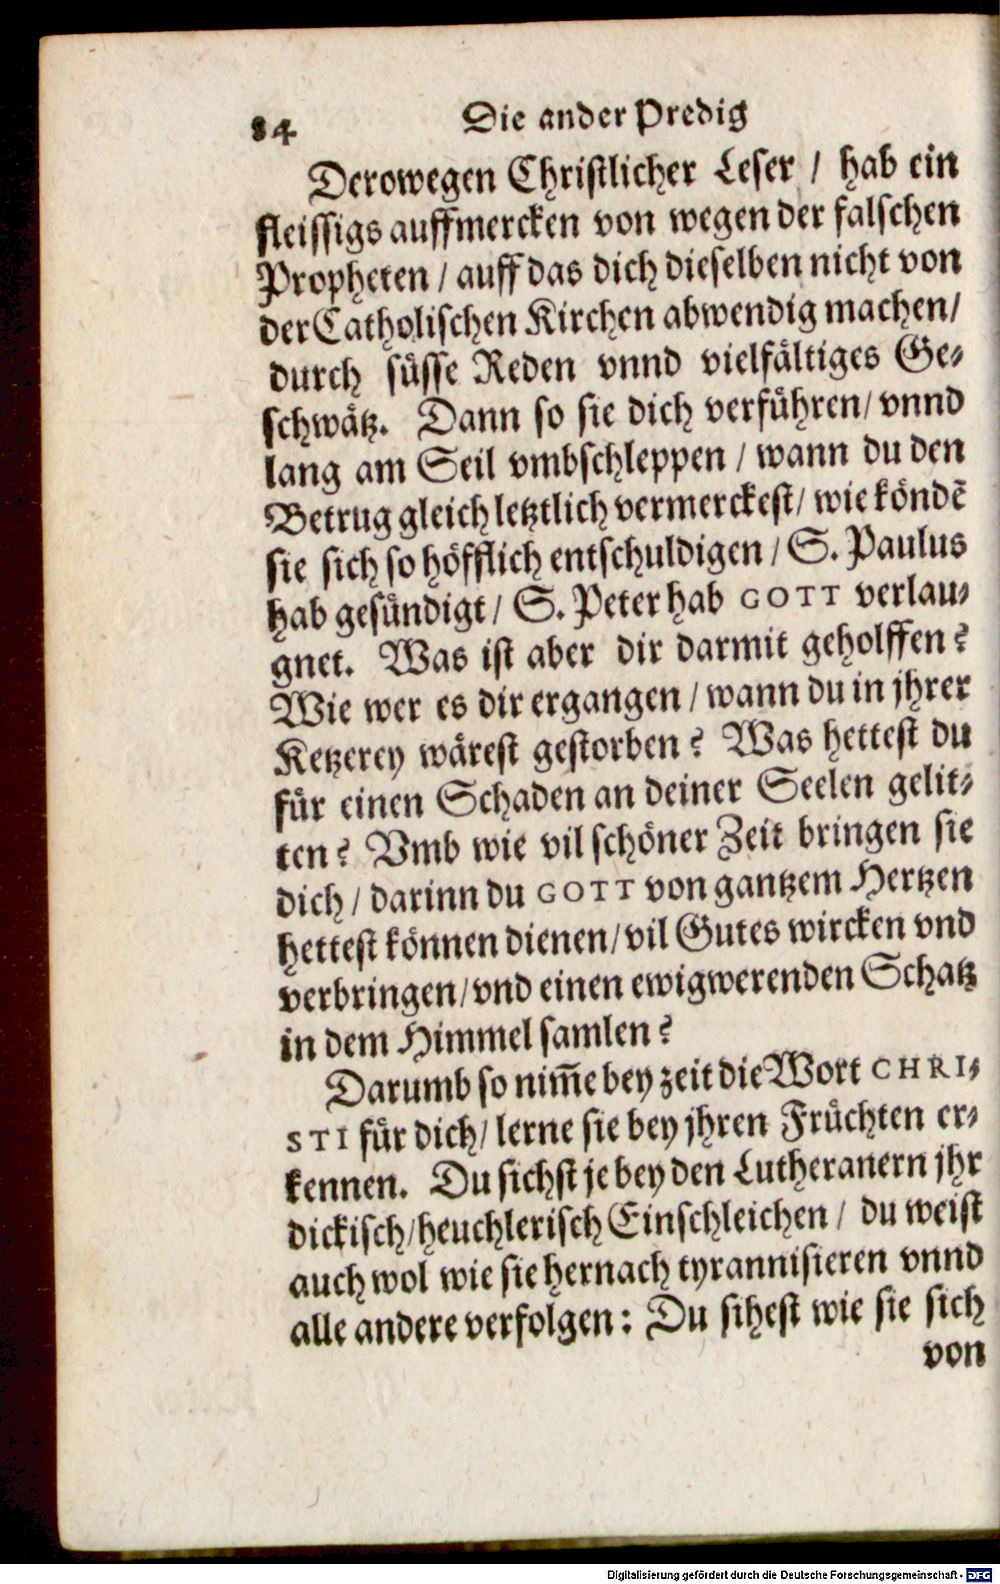 84 Die ander Predig
Derowegen Christlicher Leser / hab ein
fleissigs auffmercken von wegen der falschen
Propheten / auff das dich dieselben nicht von
der Catholischen Kirchen abwendig machen /
durch süsse Reden vnnd vielfältiges Ge-
schwätz. Dann so sie dich verführen / vnnd
lang am Seil vmbschleppen / wann du den
Betrug gleich letztlich vermerckest / wie köndē
sie sich so höfflich entschuldigen / S. Paulus
hab gesündigt / S. Peter hab GOTT verlau-
gnet. Was ist aber dir darmit geholffen?
Wie wer es dir ergangen / wann du in jhrer
Ketzerey wärest gestorben? Was hettest du
für einen Schaden an deiner Seelen gelit-
ten? Vmb wie vil schöner Zeit bringen sie
dich / darinn du GOTT von gantzem Hertzen
hettest können dienen / vil Gutes wircken vnd
verbringen / vnd einen ewigwerenden Schatz
in dem Himmel samlen?
Darumb so nim̄e bey zeit die Wort CHRI-
STI für dich / lerne sie bey jhren Früchten er-
kennen. Du sichst je bey den Lutheranern jhr
dickisch / heuchlerisch Einschleichen / du weist
auch wol wie sie hernach tyrannisieren vnnd
alle andere verfolgen: Du sihest wie sie sich
von
Digitalisierung gefördert durch die Deutsche Forschungsgemeinschaft - DFG